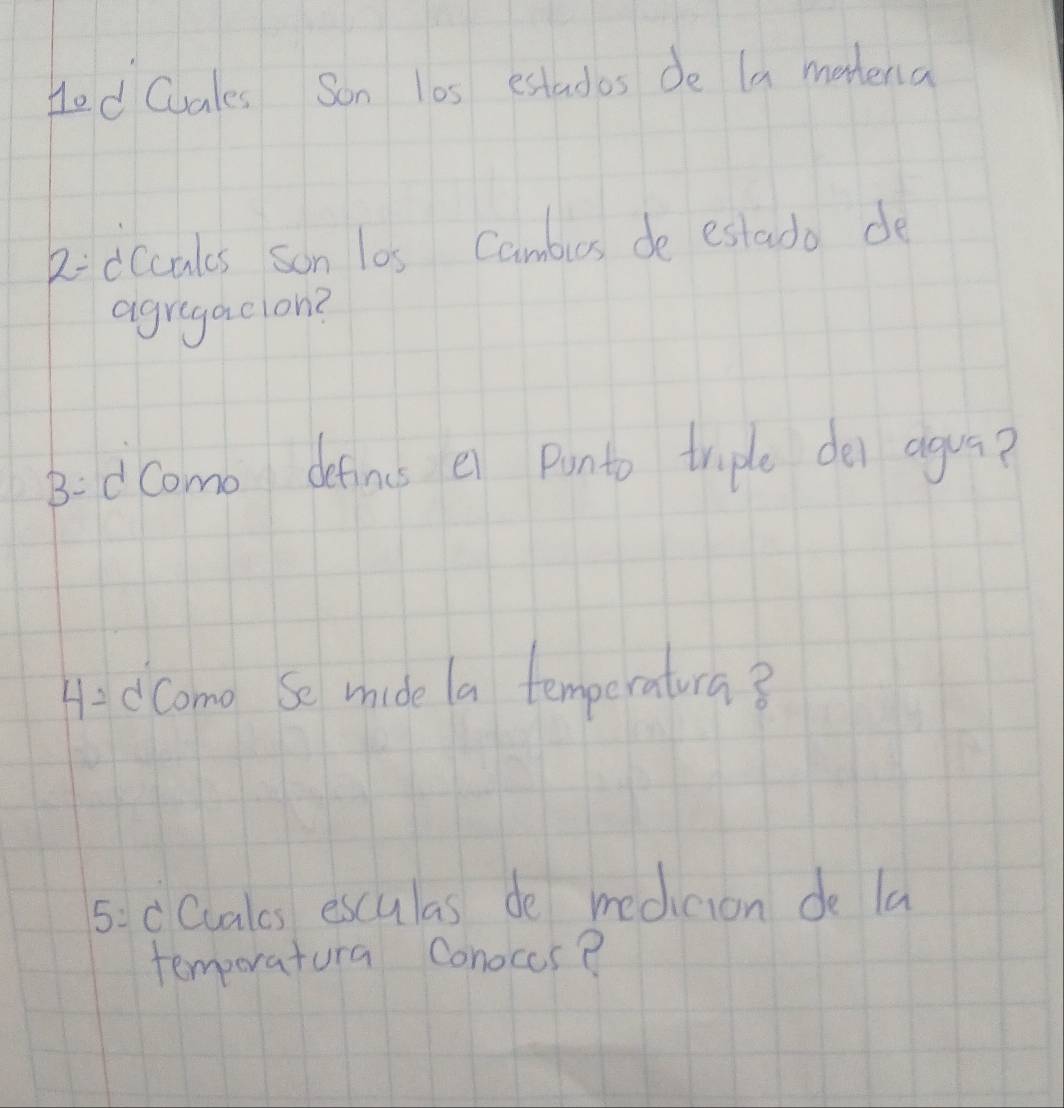 1.- ¿Cuales Son los estados de la materia
2- ¿Cuales son los Cambios de estado de
agregacion?
3- ¿Como defines el Punto triple del agua?
4- ¿Como Se mide la temperatura?
5- ¿Cuales esculas de medicion de la
temperatura Conoces?